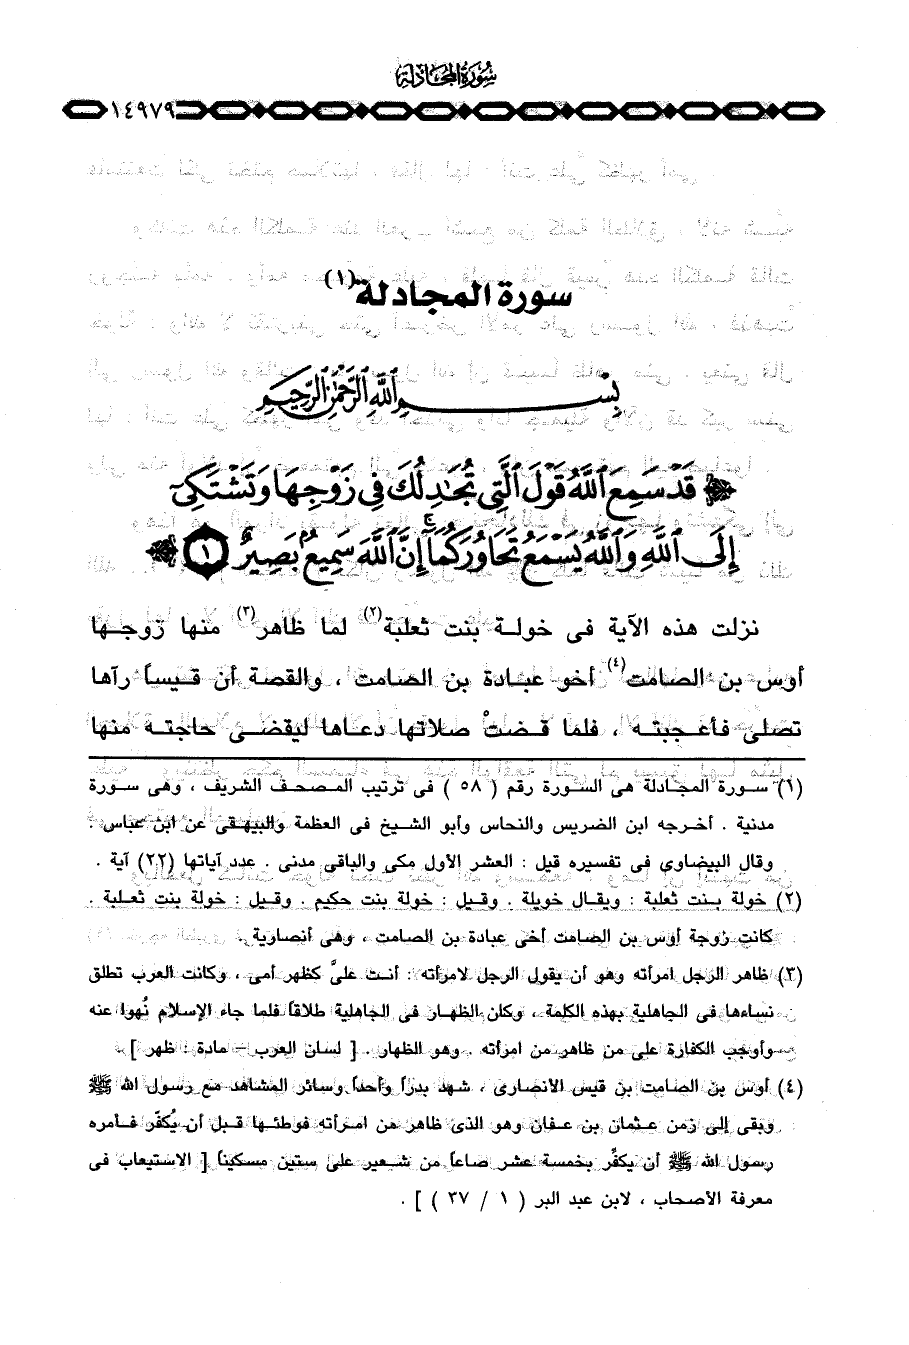 سورة المجادلة
١٤٩٧٩
سورة المجادلة(١)
بسم الله الرحمن الرحيم
﴿ قَدْ سَمِعَ ٱللَّهُ قَوْلَ ٱلَّتِى تُجَٰدِلُكَ فِى زَوْجِهَا وَتَشْتَكِىٓ
إِلَى ٱللَّهِ وَٱللَّهُ يَسْمَعُ تَحَاوُرَكُمَآ إِنَّ ٱللَّهَ سَمِيعٌۢ بَصِيرٌ ١ ﴾
نزلت هذه الآية فى خولة بنت ثعلبة(٢) لما ظاهر(٣) منها زوجها
أوس بن الصامت(٤) أخو عبادة بن الصامت ، والقصة أن قيساً رآها
تصلى فأعجبته ، فلما قضتْ صلاتها دعاها ليقضى حاجته منها
(١) سورة المجادلة هى السورة رقم ( ٥٨ ) فى ترتيب المصحف الشريف ، وهى سورة
مدنية . أخرجه ابن الضريس والنحاس وأبو الشيخ فى العظمة والبيهقى عن ابن عباس .
وقال البيضاوى فى تفسيره قيل : العشر الأول مكى والباقى مدنى . عدد آياتها (٢٢) آية .
(٢) خولة بنت ثعلبة : ويقال خويلة . وقيل : خولة بنت حكيم . وقيل : خولة بنت ثعلبة .
كانت زوجة أوس بن الصامت أخى عبادة بن الصامت ، وهى أنصارية.
(٣) ظاهر الرجل امرأته وهو أن يقول الرجل لامرأته : أنت علىَّ كظهر أمى ، وكانت العرب تطلق
نساءها فى الجاهلية بهذه الكلمة ، وكان الظهار فى الجاهلية طلاقاً فلما جاء الإسلام نُهوا عنه
وأوجب الكفارة على من ظاهر من امرأته . وهو الظهار . [ لسان العرب – مادة : ظهر ] .
(٤) أوس بن الصامت بن قيس الأنصارى ، شهد بدراً وأحداً وسائر المشاهد مع رسول الله ﷺ
وبقى إلى زمن عثمان بن عفان وهو الذى ظاهر من امرأته فوطئها قبل أن يُكفِّر فأمره
رسول الله ﷺ أن يكفِّر بخمسة عشر صاعاً من شعير على ستين مسكيناً [ الاستيعاب فى
معرفة الأصحاب ، لابن عبد البر ( ١ / ٣٧ ) ] .